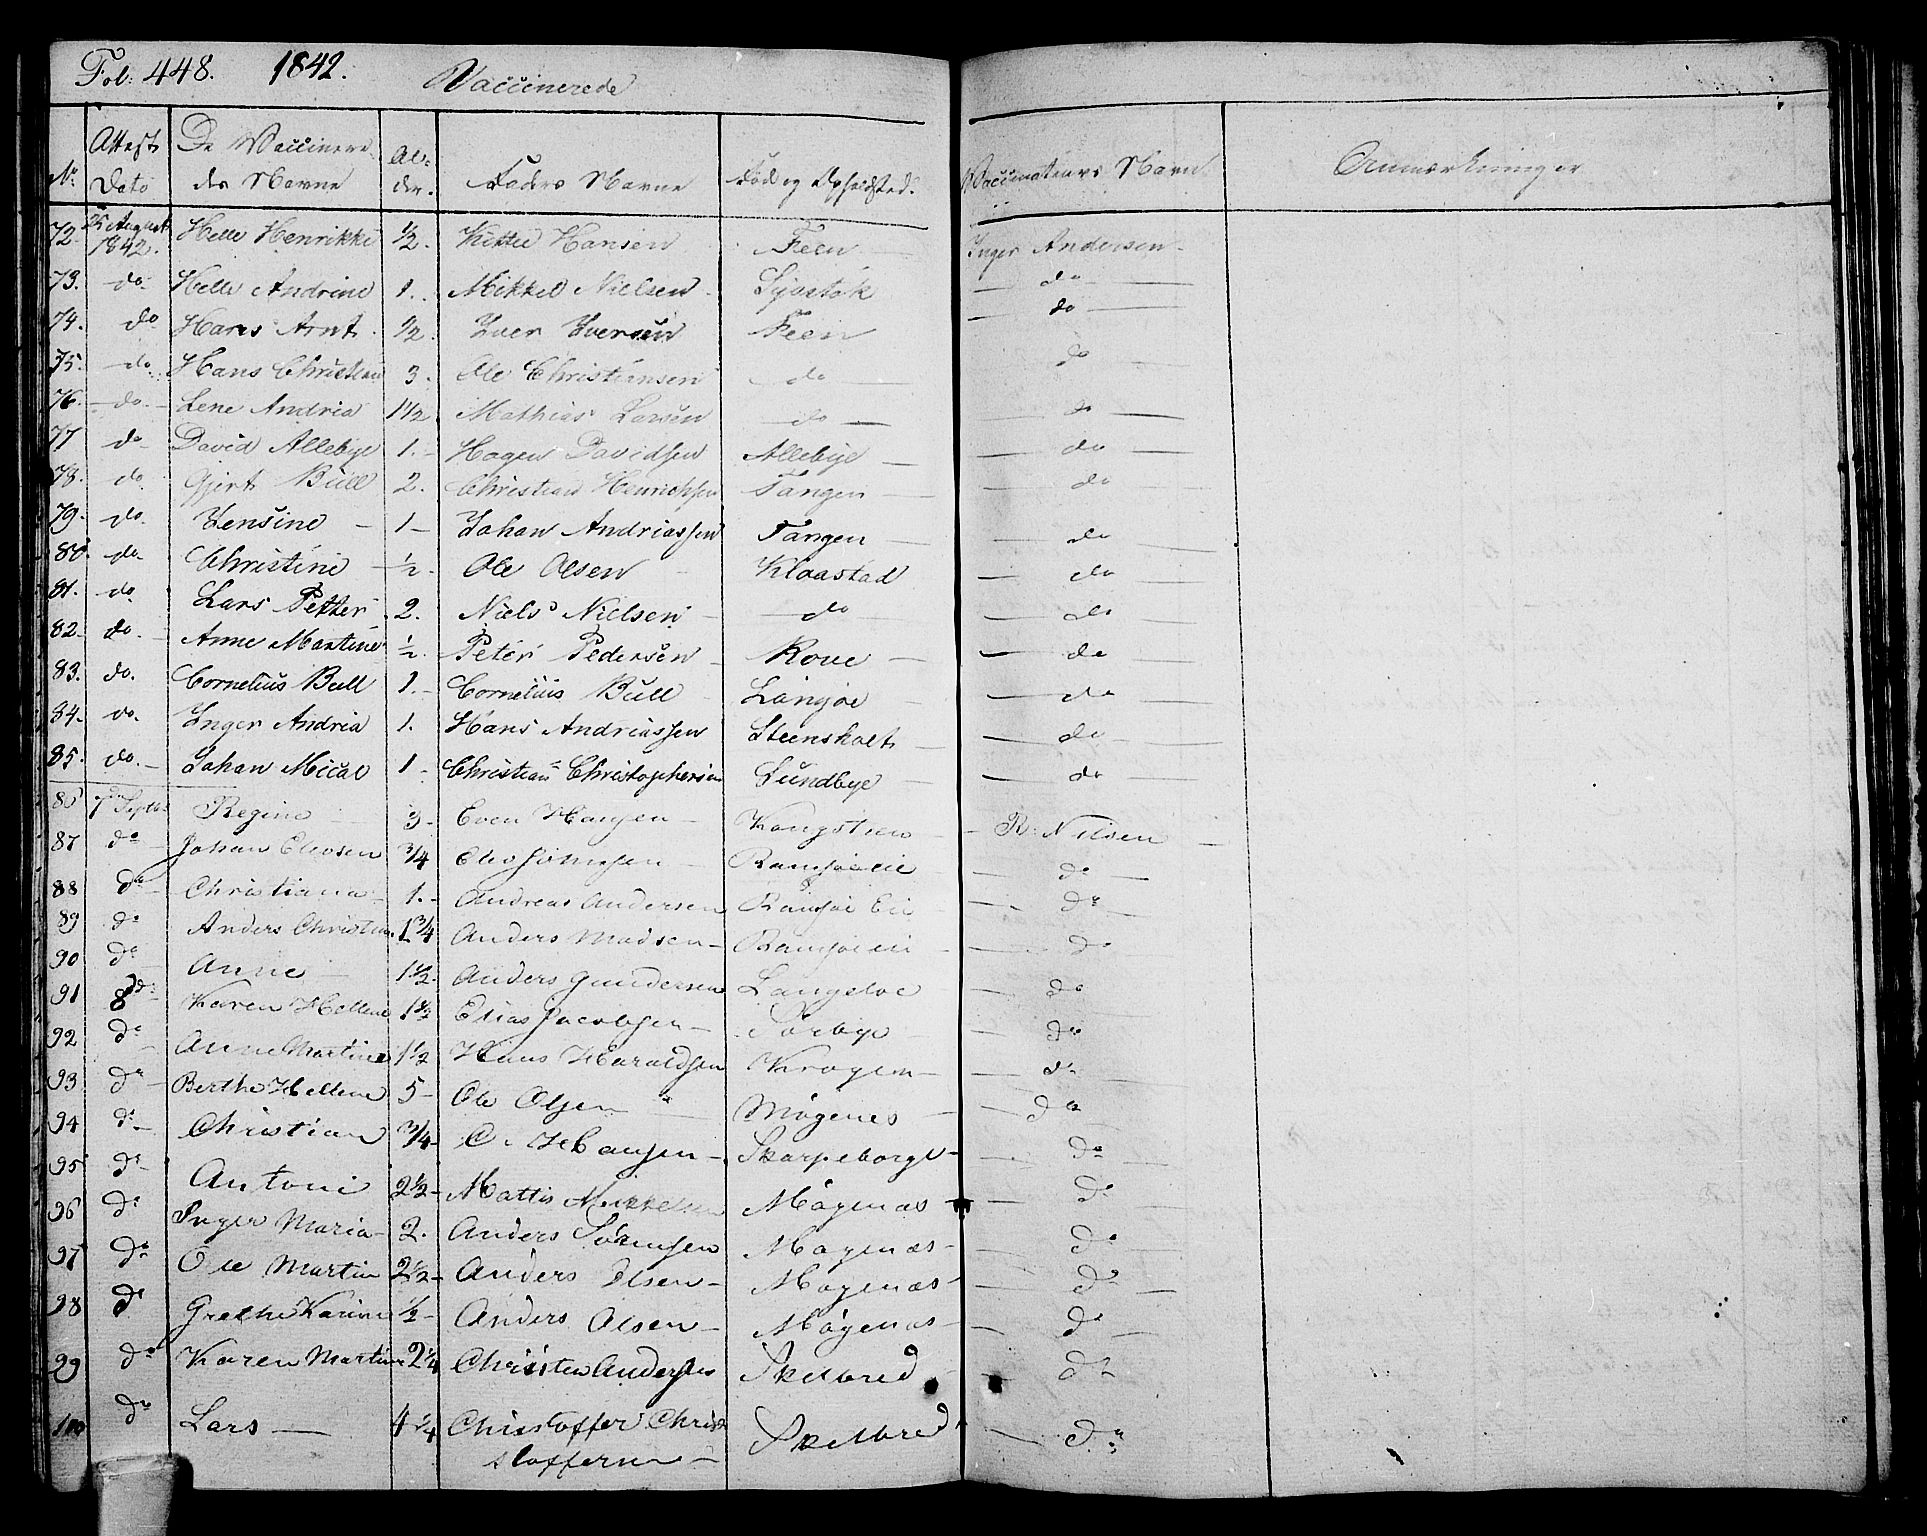 Fol: 448. 1842. Vaccinerede
No Attest Dato De Vaccinere-des Navne Al-der. Faders Navne Føde og Opholdsted. Vaccinateurs Navn Anmærkninger
72 August 1842. Helle Henrikke 1/2. Kittil Hansen Feen Inger Andersen
73. do Helle Andrine 1. Mikkel Nielsen do
74. do Hans Arnt 1/2. Iver Iversen Feen do
75. do Hans Christian 3. Ole Christiansen do do
76. do Lene Andria 1 1/2 Mathias Larsen do do
77 do David Allebye 1. Hagen Davidsen Allebye do
78. do Gjert Bull 2. Christian Henrichsen Tangen do
79. do Jensine 1 Johan Andriassen Tangen do
80. do Christine 1/2. Ole Olsen Klaastad do
81. do Lars Petter 2. Niels Nielsen do do
82. do Anne Martine 1/2. Peter Pedersen Rove do
83. do. Cornelius Bull 1. Cornelius Bull Langøe do
84. do. Inger Andria 1. Hans Andriassen Steensholt do
85. do. Johan Mical 1 Christian Christophersen Sundbye do
86 7 Septb. Regine 3 Even Hansen Kongsteen R. Nilsen
87 do Johan Eliesen 3/4 Elies Johnsen do
88 do Christiana 1. Andreas Andersen do
89 do Anders Christian 1 3/4 Anders Madsen do
90 do Anne 1 1/2. Anders Gundersen Langeløe do
91 8 do Karen Hellene 1 1/2 Elias Jacobsen Sørbye do
92 do Anne Martine 1 1/2 Hans Haraldsen Krogen do
93 do Berthe Hellene 5 Ole Olsen Møgenes do
94 do Christian 3/4 O. Hansen Skarpeborgl do
95 do Antoni 2 1/2 Mattis Mikkelsen Møgenæs do
96 do Inger Maria 2. Anders Sørensen Møgenæs do
97 do Ole Martin 2 1/2 Anders Olsen Møgenæs do
98 do Grethe Karine 1/2 Anders Olsen Møgenæs do
99 do Karen Martine 2 1/4 Christen Andersen Skelbred do
100 do Lars 4 1/4 Christoffer Christ Skelbred do
stoffersen